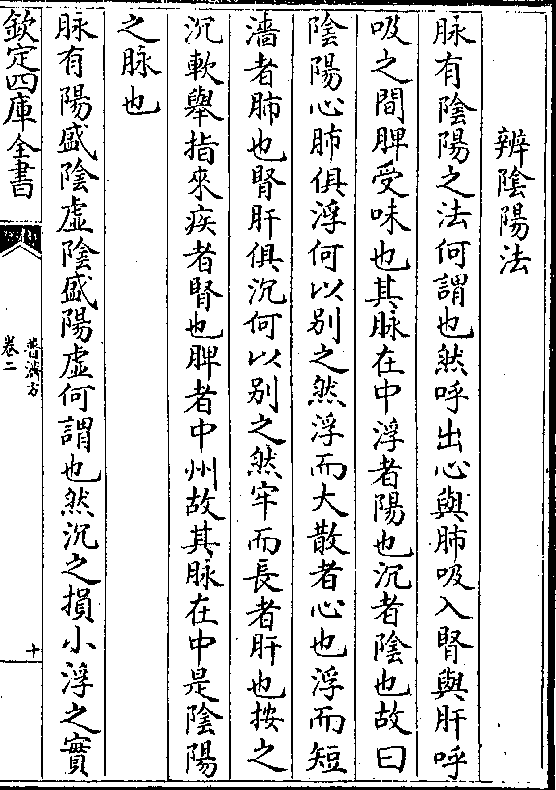 辨陰陽法
脉有陰陽之法何謂也然呼出心與肺吸入腎與肝呼
吸之間脾受味也其脉在中浮者陽也沉者陰也故曰
陰陽心肺俱浮何以别之然浮而大散者心也浮而短
濇者肺也腎肝俱沉何以别之然牢而長者肝也按之
沉軟舉指來疾者腎也脾者中州故其脉在中是陰陽
之脉也
脉有陽盛陰虛陰盛陽虛何謂也然沉之損小浮之實
欽定四庫全書
普濟方
卷二
十